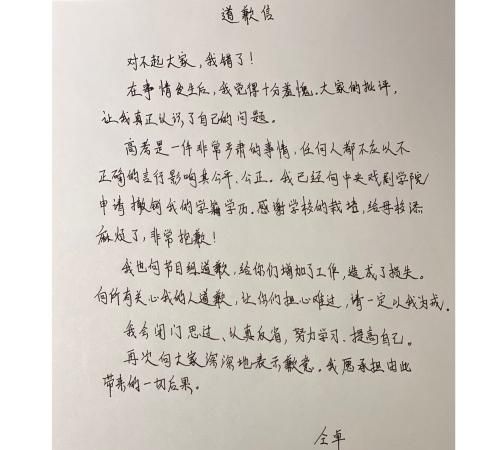 道歉信
对不起大家，我错了！
在事情发生后，我觉得十分羞愧。大家的批评，
让我真正认识了自己的问题。
高考是一件非常严肃的事情，任何人都不应以不
正确的言行影响其公平、公正。我已经向中央戏剧学院
申请撤销我的学籍学历。感谢学校的栽培，给母校添
麻烦了，非常抱歉！
我也向节目组道歉，给你们增加了工作，造成了损失。
向所有关心我的人道歉，让你们担心难过，请一定以我为戒。
我会闭门思过、认真反省，努力学习、提高自己。
再次向大家深深地表示歉意。我愿承担由此
带来的一切后果。
仝卓